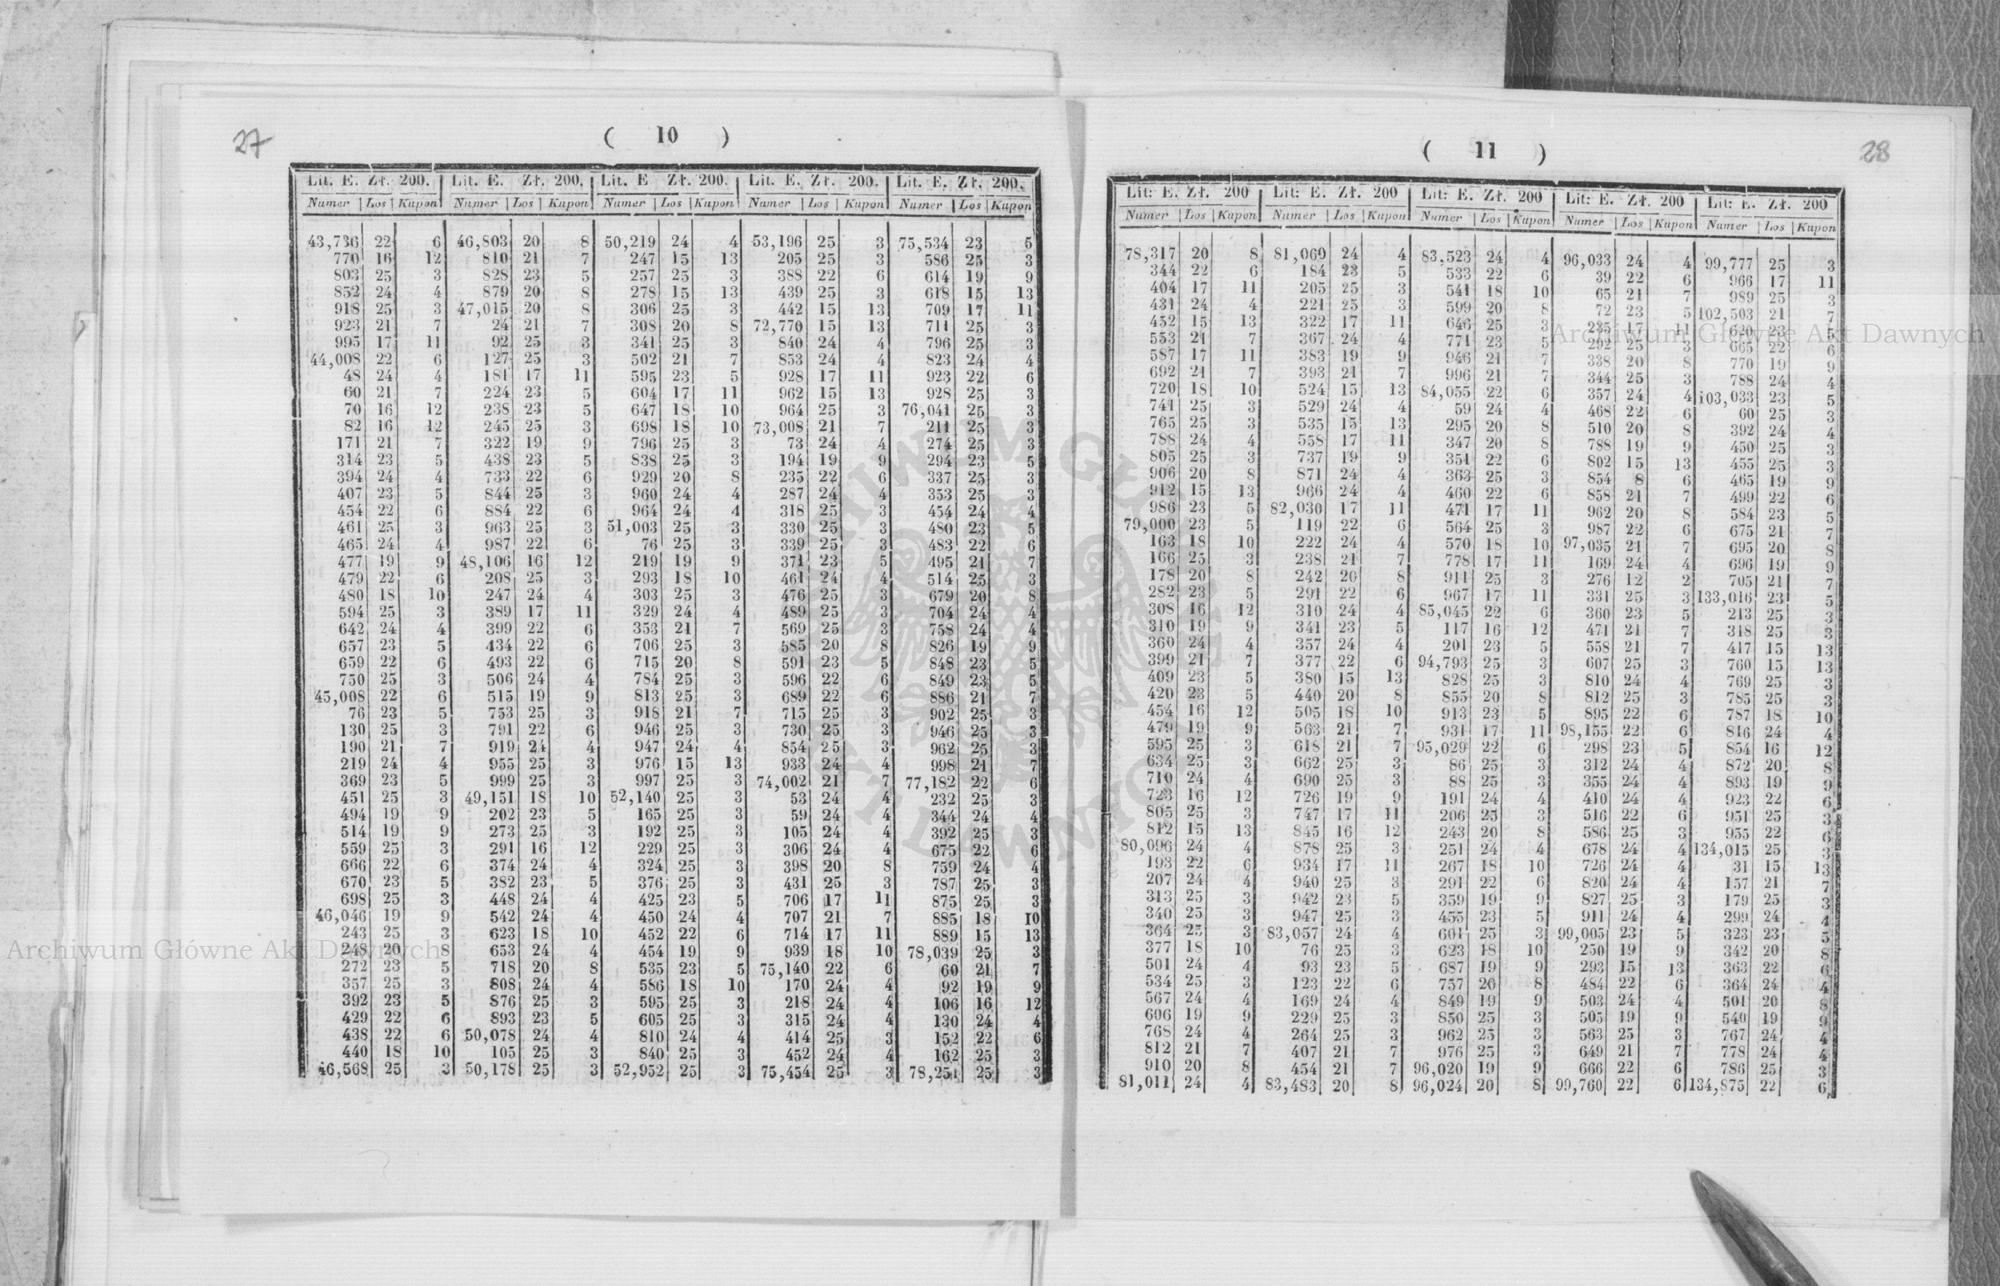 27
( 10 )
Lit. E. Zł. 200. Lit. E. Zł. 200. Lit. E Zł. 200. Lit. E. Zł. 200. Lit. E. Zł. 200.
Numer Los Kupon Numer Los Kupon Numer Los Kupon Numer Los Kupon Numer Los Kupon
43,736 22 6 46,803 20 8 50,219 24 4 53,196 25 3 75,534 23 5
770 16 12 810 21 7 247 15 13 205 25 3 586 25 3
803 25 3 828 23 5 257 25 3 388 22 6 614 19 9
852 24 4 879 20 8 278 15 13 439 25 3 618 15 13
918 25 3 47,015 20 8 306 25 3 442 15 13 709 17 11
923 21 7 24 21 7 308 20 8 72,770 15 13 711 25 3
995 17 11 92 25 3 341 25 3 840 24 4 796 25 3
44,008 22 6 127 25 3 502 21 7 853 24 4 823 24 4
48 24 4 181 17 11 595 23 5 928 17 11 923 22 6
60 21 7 224 23 5 604 17 11 962 15 13 928 25 3
70 16 12 238 23 5 647 18 10 964 25 3 76,041 25 3
82 16 12 245 25 3 698 18 10 73,008 21 7 211 25 3
171 21 7 322 19 9 796 25 3 73 24 4 274 25 3
314 23 5 438 23 5 838 25 3 194 19 9 294 23 5
394 24 4 733 22 6 929 20 8 235 22 6 337 25 3
407 23 5 844 25 3 960 24 4 287 24 4 353 25 3
454 22 6 884 22 6 964 24 4 318 25 3 454 24 4
461 25 3 963 25 3 51,003 25 3 330 25 3 480 23 5
465 24 4 987 22 6 76 25 3 339 25 3 483 22 6
477 19 9 48,106 16 12 219 19 9 371 23 5 495 21 7
479 22 6 208 25 3 293 18 10 461 24 4 514 25 3
480 18 10 247 24 4 303 25 3 476 25 3 679 20 8
594 25 3 389 17 11 329 24 4 489 25 3 704 24 4
642 24 4 399 22 6 353 21 7 569 25 3 758 24 4
657 23 5 434 22 6 706 25 3 585 20 8 826 19 9
659 22 6 493 22 6 715 20 8 591 23 5 848 23 5
750 25 3 506 24 4 784 25 3 596 22 6 849 23 5
45,008 22 6 515 19 9 813 25 3 689 22 6 886 21 7
76 23 5 753 25 3 918 21 7 715 25 3 902 25 3
130 25 3 791 22 6 946 25 3 730 25 3 946 25 3
190 21 7 919 24 4 947 24 4 854 25 3 962 25 3
219 24 4 955 25 3 976 15 13 933 24 4 998 21 7
369 23 5 999 25 3 997 25 3 74,002 21 7 77,182 22 6
451 25 3 49,151 18 10 52,140 25 3 53 24 4 232 25 3
494 19 9 202 23 5 165 25 3 59 24 4 344 24 4
514 19 9 273 25 3 192 25 3 105 24 4 392 25 3
559 25 3 291 16 12 229 25 3 306 24 4 675 22 6
666 22 6 374 24 4 324 25 3 398 20 8 759 24 4
670 23 5 382 23 5 376 25 3 431 25 3 787 25 3
698 25 3 448 24 4 425 23 5 706 17 11 875 25 3
46,046 19 9 542 24 4 450 24 4 707 21 7 885 18 10
243 25 3 623 18 10 452 22 6 714 17 11 889 15 13
248 20 8 653 24 4 454 19 9 939 18 10 78,039 25 3
272 23 5 718 20 8 535 23 5 75,140 22 6 60 21 7
357 25 3 808 24 4 586 18 10 170 24 4 92 19 9
392 23 5 876 25 3 595 25 3 218 24 4 106 16 12
429 22 6 893 23 5 605 25 3 315 24 4 130 24 4
438 22 6 50,078 24 4 810 24 4 414 25 3 152 22 6
440 18 10 105 25 3 840 25 3 452 24 4 162 25 3
46,568 25 3 50,178 25 3 52,952 25 3 75,454 25 3 78,251 25 3
28
( 11 )
Lit: E. Zł. 200 Lit: E. Zł. 200 Lit: E. Zł. 200 Lit: E. Zł. 200 Lit: E. Zł. 200
Numer Los Kupon Numer Los Kupon Numer Los Kupon Numer Los Kupon Numer Los Kupon
78,317 20 8 81,069 24 4 83,523 24 4 96,033 24 4 99,777 25 3
344 22 6 184 23 5 533 22 6 39 22 6 966 17 11
404 17 11 205 25 3 541 18 10 65 21 7 989 25 3
431 24 4 221 25 3 599 20 8 72 23 5 102,503 21 7
452 15 13 322 17 11 646 25 3 235 17 11 620 23 5
553 21 7 367 24 4 771 23 5 292 25 3 665 22 6
587 17 11 383 19 9 946 21 7 338 20 8 770 19 9
692 21 7 393 21 7 996 21 7 344 25 3 788 24 4
720 18 10 524 15 13 84,055 22 6 357 24 4 103,033 23 5
741 25 3 529 24 4 59 24 4 468 22 6 60 25 3
765 25 3 535 15 13 295 20 8 510 20 8 392 24 4
788 24 4 558 17 11 347 20 8 788 19 9 450 25 3
805 25 3 737 19 9 351 22 6 802 15 13 455 25 3
906 20 8 871 24 4 363 25 3 854 8 6 465 19 9
912 15 13 966 24 4 460 22 6 858 21 7 499 22 6
986 23 5 82,030 17 11 471 17 11 962 20 8 584 23 5
79,000 23 5 119 22 6 564 25 3 987 22 6 675 21 7
163 18 10 222 24 4 570 18 10 97,035 21 7 695 20 8
166 25 3 238 21 7 778 17 11 169 24 4 696 19 9
178 20 8 242 20 8 911 25 3 276 12 2 705 21 7
282 23 5 291 22 6 967 17 11 331 25 3 133,016 23 5
308 16 12 310 24 4 85,045 22 6 360 23 5 213 25 3
310 19 9 341 23 5 117 16 12 471 21 7 318 25 3
360 24 4 357 24 4 201 23 5 558 21 7 417 15 13
399 21 7 377 22 6 94,793 25 3 607 25 3 760 15 13
409 23 5 380 15 13 828 25 3 810 24 4 769 25 3
420 23 5 440 20 8 855 20 8 812 25 3 785 25 3
454 16 12 505 18 10 913 23 5 895 22 6 787 18 10
479 19 9 563 21 7 931 17 11 98,155 22 6 816 24 4
595 25 3 618 21 7 95,029 22 6 298 23 5 854 16 12
634 25 3 662 25 3 86 25 3 312 24 4 872 20 8
710 24 4 690 25 3 88 25 3 355 24 4 893 19 9
723 16 12 726 19 9 191 24 4 410 24 4 923 22 6
805 25 3 747 17 11 206 25 3 516 22 6 951 25 3
812 15 13 845 16 12 243 20 8 586 25 3 955 22 6
80,096 24 4 878 25 3 251 24 4 678 24 4 134,015 25 3
193 22 6 934 17 11 267 18 10 726 24 4 31 15 13
207 24 4 940 25 3 291 22 6 820 24 4 157 21 7
313 25 3 942 23 5 359 19 9 827 25 3 179 25 3
340 25 3 947 25 3 455 23 5 911 24 4 299 24 4
364 25 3 83,057 24 4 601 25 3 99,005 23 5 323 23 5
377 18 10 76 25 3 623 18 10 250 19 9 342 20 8
501 24 4 93 23 5 687 19 9 293 15 13 363 22 6
534 25 3 123 22 6 757 20 8 484 22 6 364 24 4
567 24 4 169 24 4 849 19 9 503 24 4 501 20 8
606 19 9 229 25 3 850 25 3 505 19 9 540 19 9
768 24 4 264 25 3 962 25 3 563 25 3 767 24 4
812 21 7 407 21 7 976 25 3 649 21 7 778 24 4
910 20 8 454 21 7 96,020 19 9 666 22 6 786 25 3
81,011 24 4 83,483 20 8 96,024 20 8 99,760 22 6 134,875 22 6
Archiwum Główne Akt Dawnych
Archiwum Główne Akt Dawnych
ARCHIWUM GŁÓWNE AKT DAWNYCH